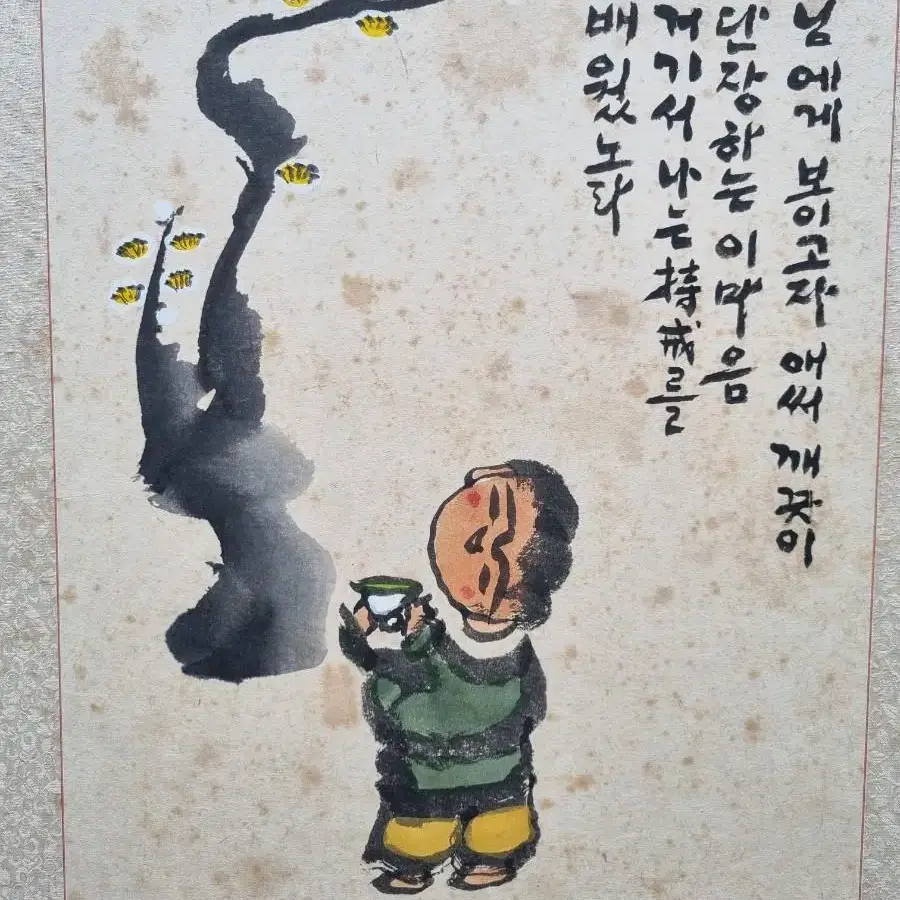 님에게 보이고자 애써 깨끗이
단장하는 이 마음
거기서 나는 持戒를
배웠노라